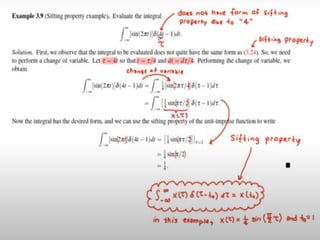 does not have form of sifting
property due to "4"
Example 3.9 (Sifting property example). Evaluate the integral
∫_{-∞}^{∞} [sin(2πt)]δ(4t − 1)dt.
τ
sifting property
Solution. First, we observe that the integral to be evaluated does not quite have the same form as (3.24). So, we need
to perform a change of variable. Let τ = 4t so that t = τ/4 and dt = dτ/4. Performing the change of variable, we
obtain
change of variable
∫_{-∞}^{∞} [sin(2πt)]δ(4t − 1)dt = ∫_{-∞}^{∞} ¼[sin(2πτ/4)]δ(τ − 1)dτ
= ∫_{-∞}^{∞} [¼ sin(πτ/2)] δ(τ − 1)dτ.
x(τ)
Now the integral has the desired form, and we can use the sifting property of the unit-impulse function to write
∫_{-∞}^{∞} [sin(2πt)]δ(4t − 1)dt = [¼ sin(πτ/2)]|_{τ=1}
sifting property
= ¼ sin(π/2)
= ¼.
∫_{-∞}^{∞} x(τ) δ(τ-t₀) dτ = x(t₀)
in this example, x(τ) = ¼ sin(π/2 τ) and t₀=1